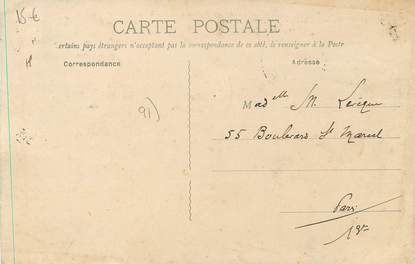 15€
CARTE POSTALE
Certains pays étrangers n'acceptent pas la correspondance de ce côté, se renseigner à la Poste
Correspondance
Adresse
91)
Madelle M.
55 Boulevard St Marcel
Paris